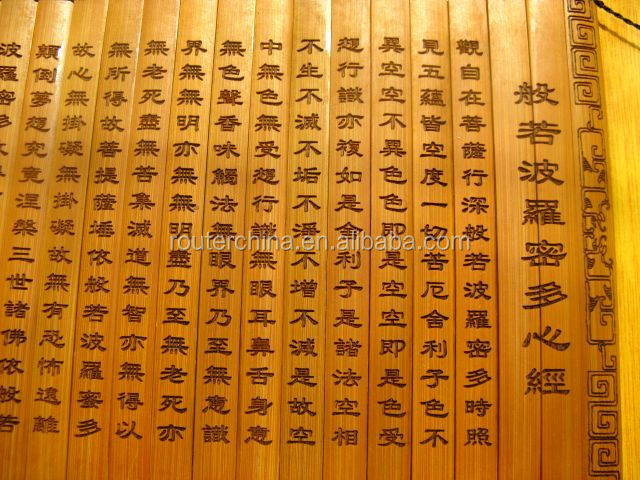 般若波羅密多心經
觀自在菩薩行深般若波羅密多時照
見五蘊皆空度一切苦厄舍利子色不
異空空不異色色即是空空即是色受
想行識亦複如是舍利子是諸法空相
不生不滅不垢不淨不增不減是故空
中無色無受想行識無眼耳鼻舌身意
無色聲香味觸法無眼界乃至無意識
界無無明亦無無明盡乃至無老死亦
無老死盡無苦集滅道無智亦無得以
無所得故菩提薩埵依般若波羅蜜多
故心無掛礙無掛礙故無有恐怖遠離
顛倒夢想究竟涅槃三世諸佛依般若
波羅密多
routerchina.en.alibaba.com